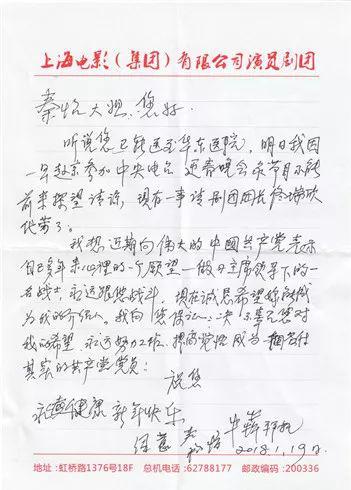 上海电影(集团)有限公司演员剧团
秦怡大姐,您好.
听说您已转送至华东医院,明日我因
一早赴京参加中央电台迎春晚会录节目不能
前来探望请谅,现有一事请剧团团长佟瑞欣
代劳了。
我想近期向伟大的中国共产党表示
自己多年来心裡的一个愿望一做习主席领导下的一
名战士,永远跟党战斗,现在诚恳希望您能成
为我的介绍人。我向您保证,决不辜负您对
我的希望,永远努力工作,提高觉悟成为一个名符
其实的共产党党员!
祝您
永远健康 新年快乐
牛犇拜托
2018.1.19日
地址:虹桥路1376号18F 总机电话:62788177 邮政编码:200336